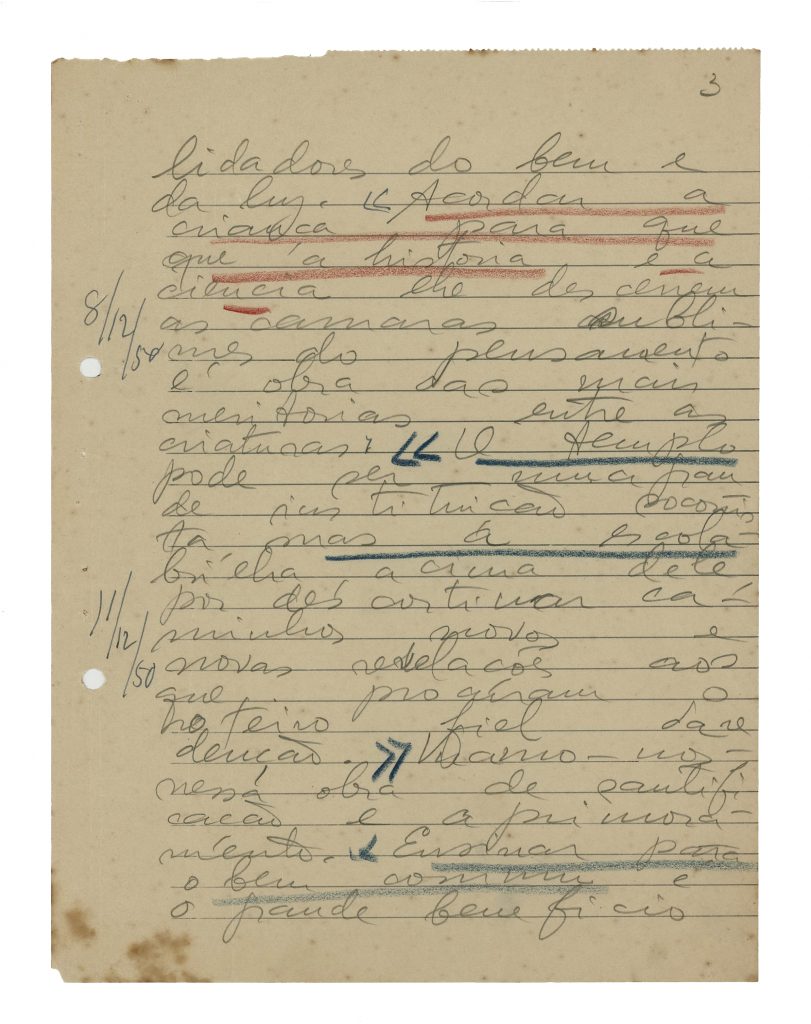 3
lidadores do bem e
da luz. « Acordar a
criança para que
que a historia e a
ciencia lhe descerrem
as camaras subli-
mes do pensamento
é obra das mais
meritorias entre as
criaturas. « O templo
pode ser uma gran
de instituição socorris
ta mas a escola
brilha acima dele
por descortinar ca-
minhos novos e
novas revelações aos
que procuram o
roteiro fiel da re
denção. » Unamo-nos-
nessa obra de santifi
cacão e aprimora-
mento. « Ensinar para
o bem commum e
o grande beneficio
8/12/50
11/12/50